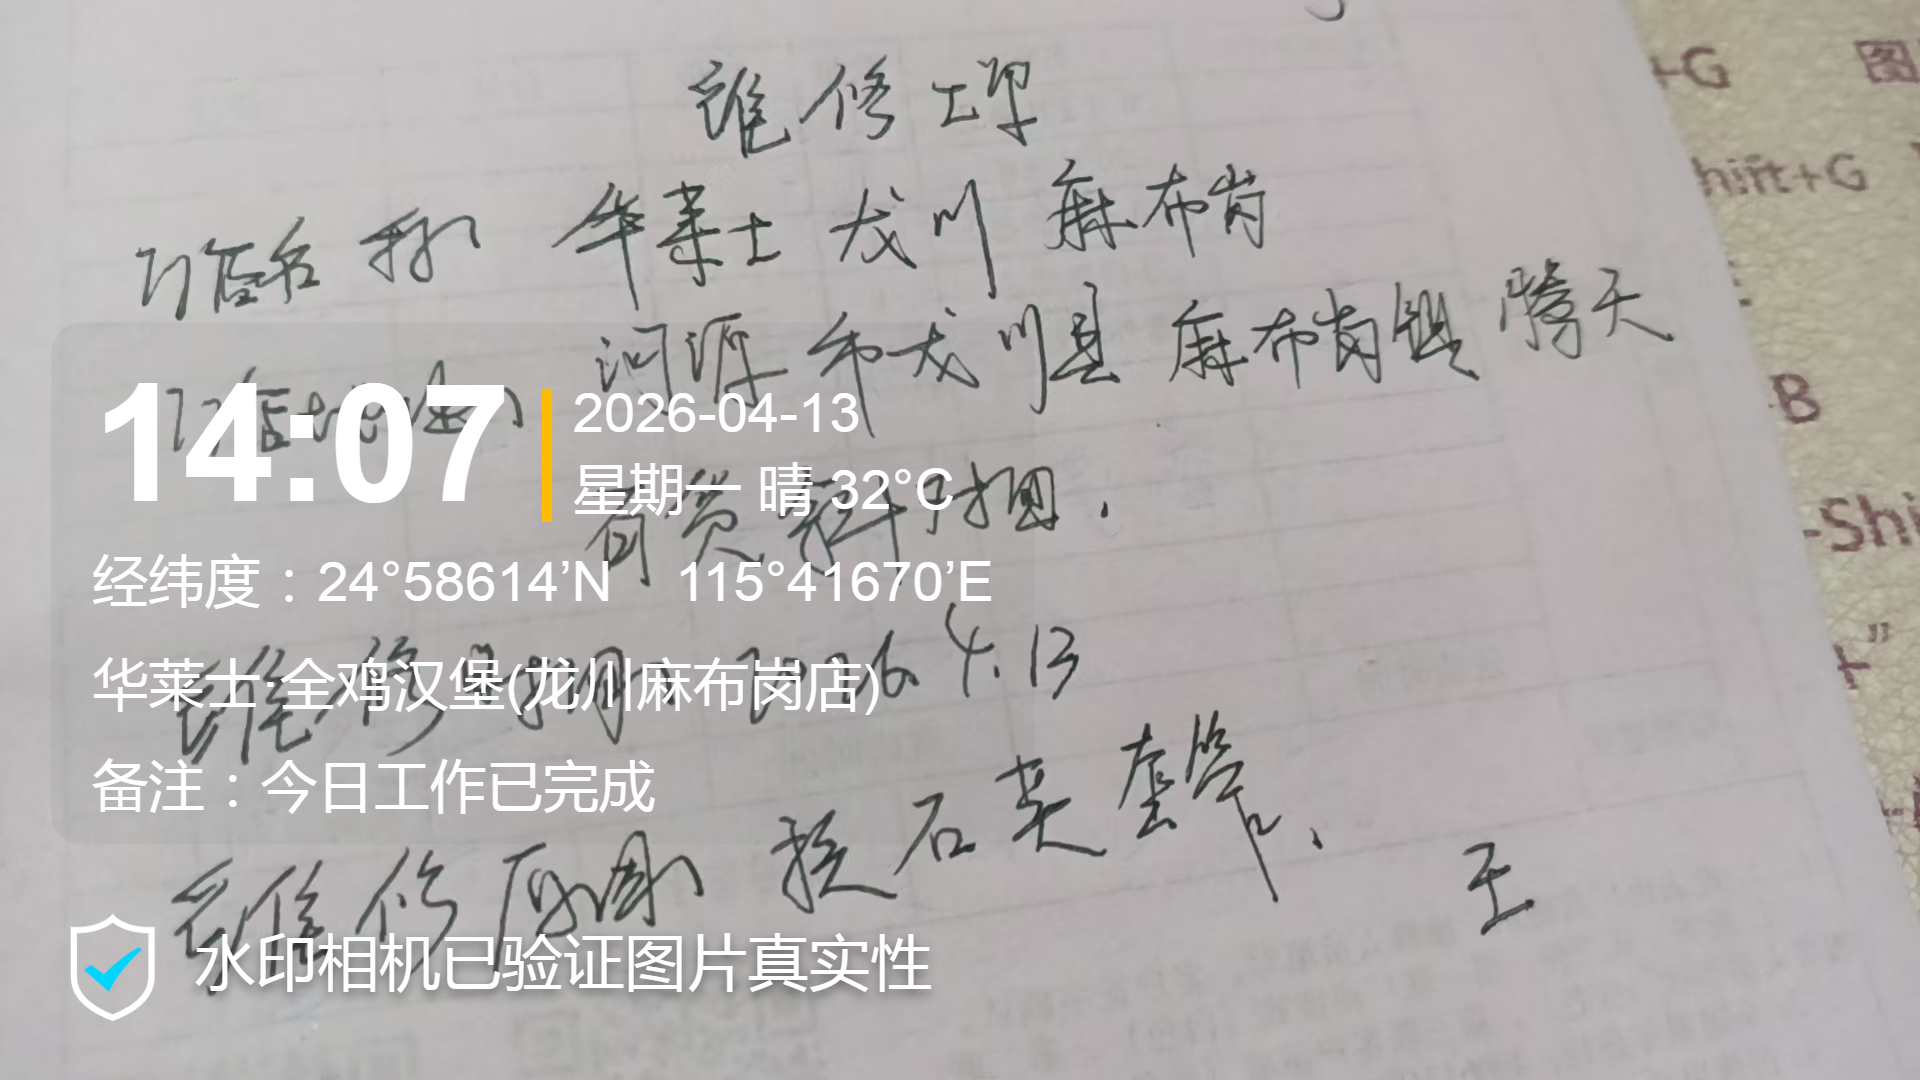 维修单
+G 图
门店名称 华莱士 龙川 麻布岗
hift+G
门店地址 河源市龙川县 麻布岗镇 腾天
B
14:07 2026-04-13
星期一 晴 32°C
百货斜对面.
-Shi
经纬度：24°58614’N 115°41670’E
维修日期 2026 4.13
华莱士·全鸡汉堡(龙川麻布岗店)
备注：今日工作已完成
维修 换石英套管、
王
水印相机已验证图片真实性